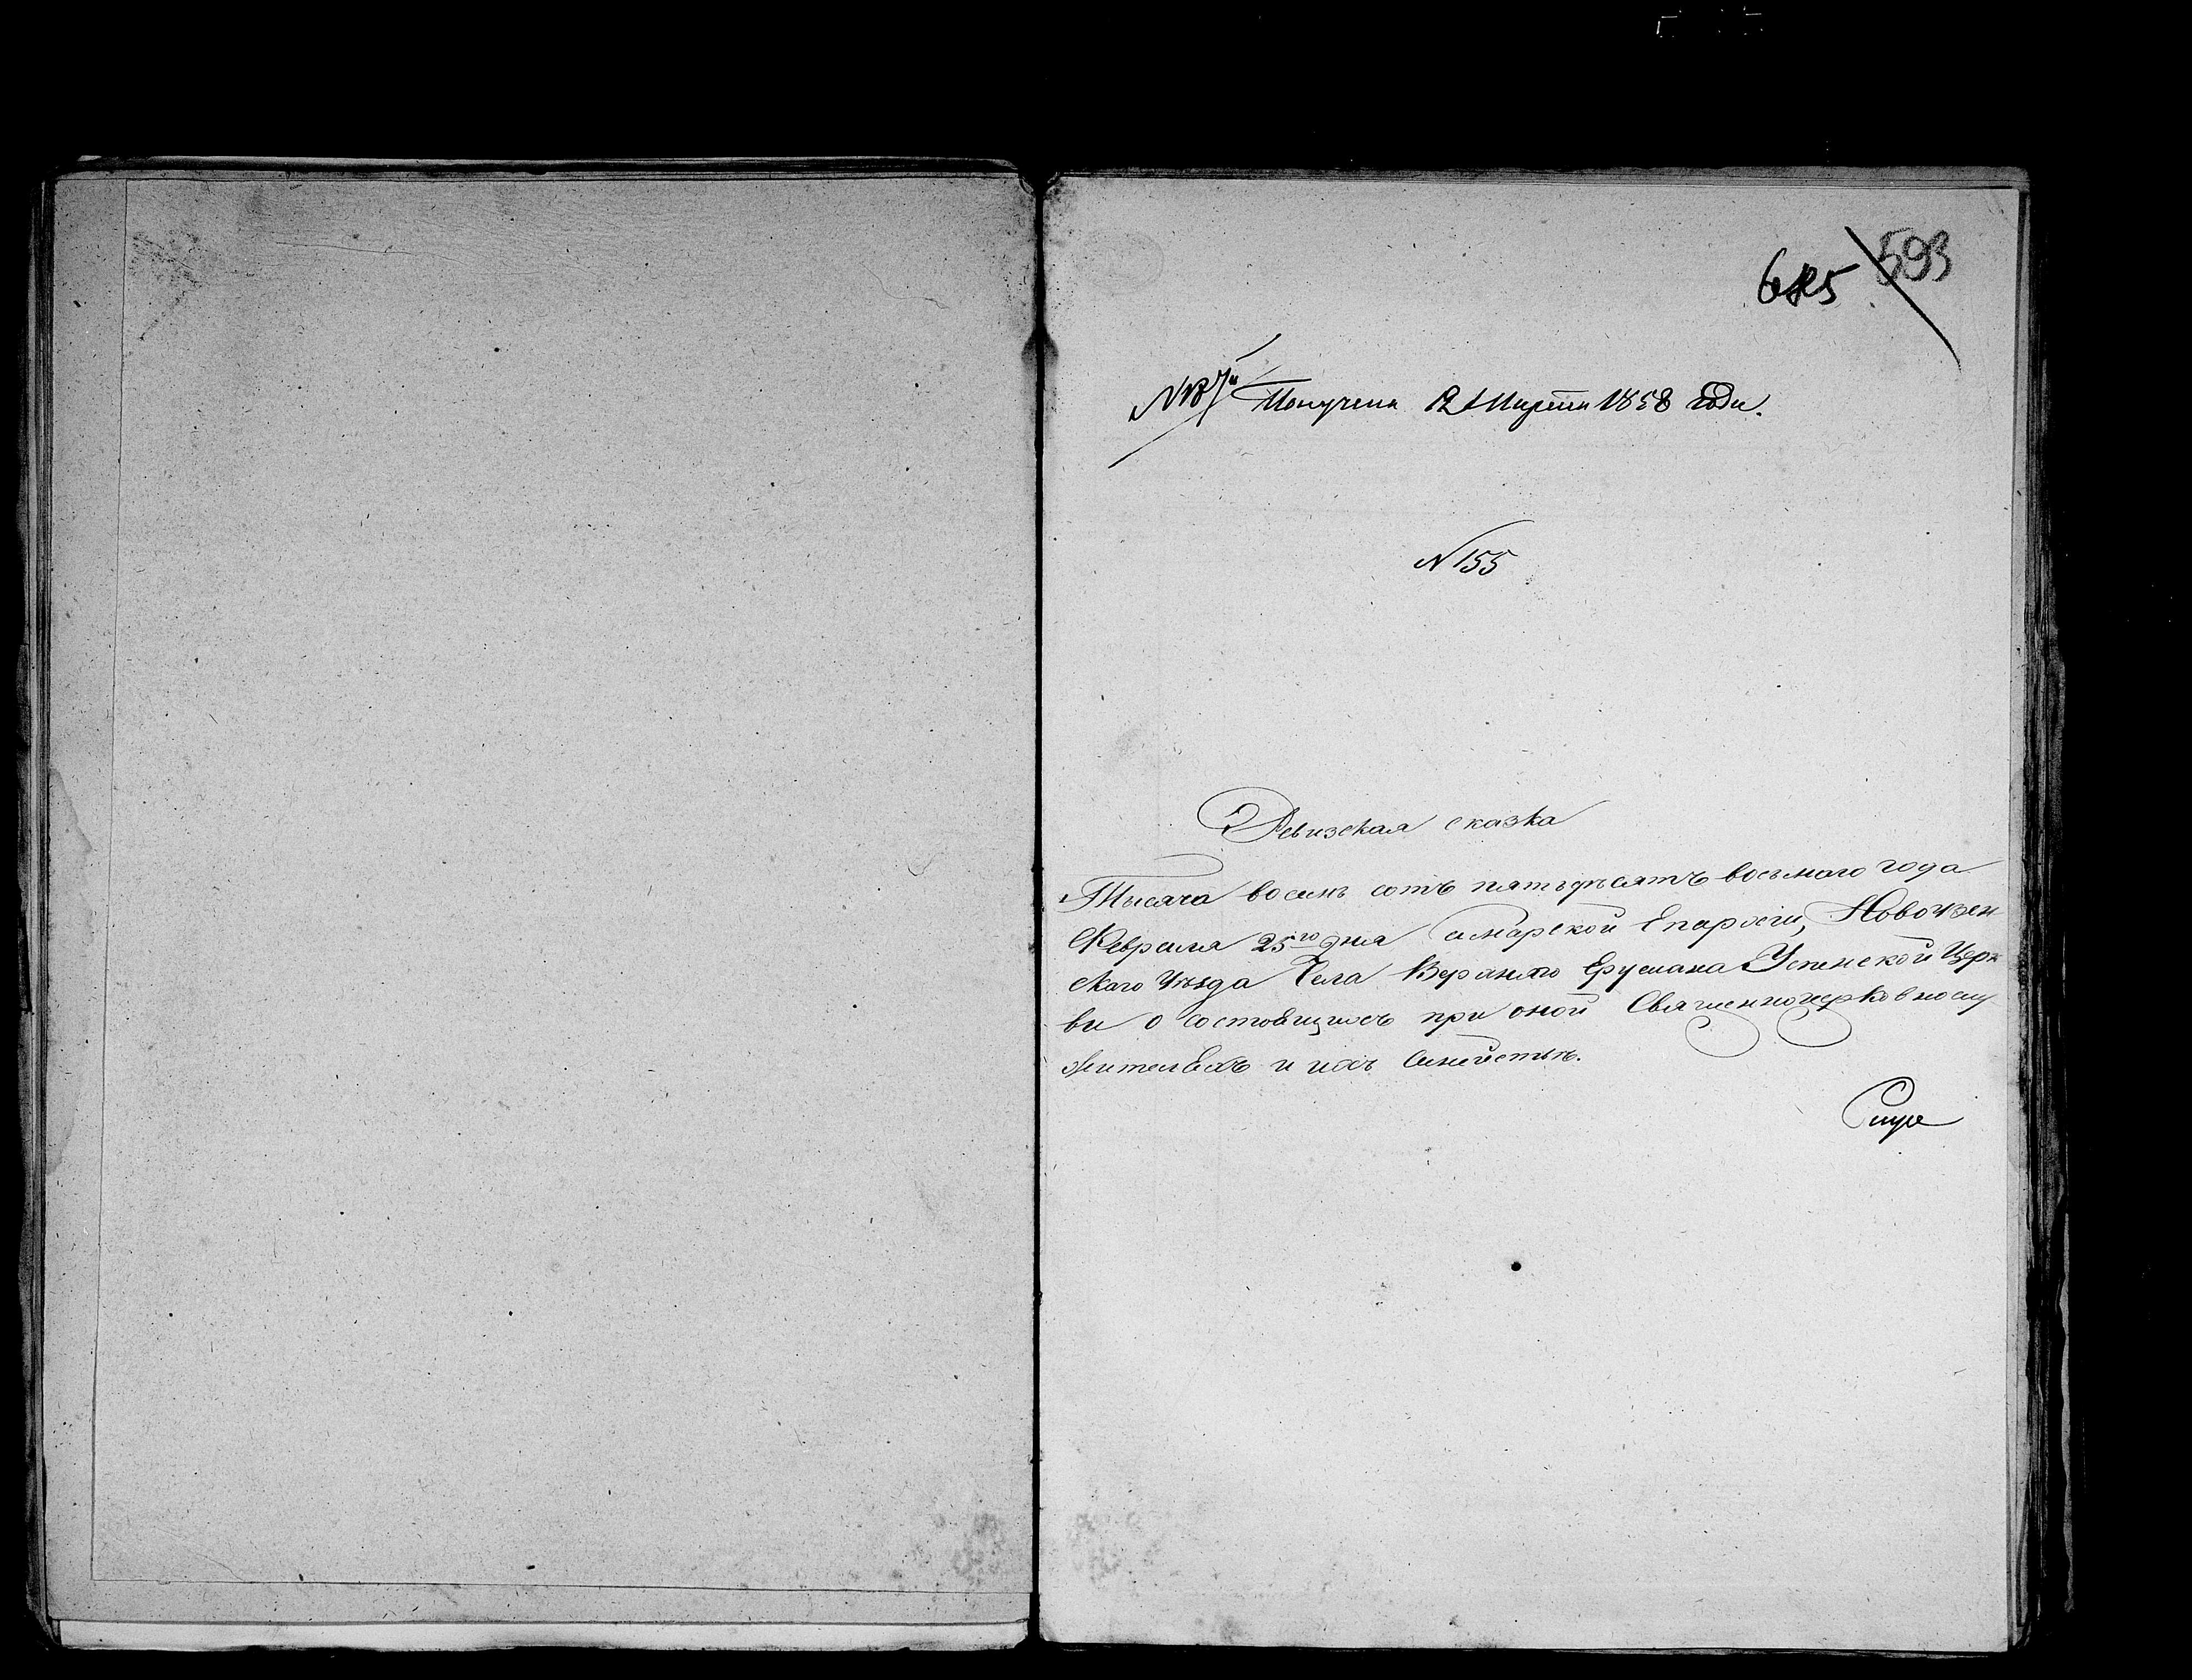 593
685
Получена 12 Марта 1858 года.
N 155
Ревизская сказка
Тысяча восемь сотъ пятьдесятъ восьмаго года
Февраля 25го дня Самарской Епархіи, Новоузен-
скаго Уѣзда Села Верхняго Еруслана Успенской Церк-
ви о состоящихъ при оной Священноцерковнослу
жителяхъ и ихъ Семействѣ.